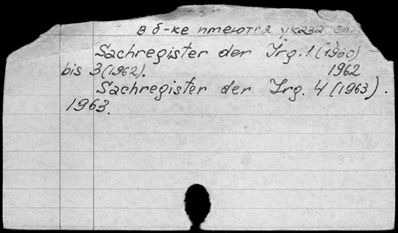 в б-ке имеются указа
Sachregister der Jrg. 1 (1960)
bis 3 (1962). 1962
Sachregister der Jrg. 4 (1963).
1963.